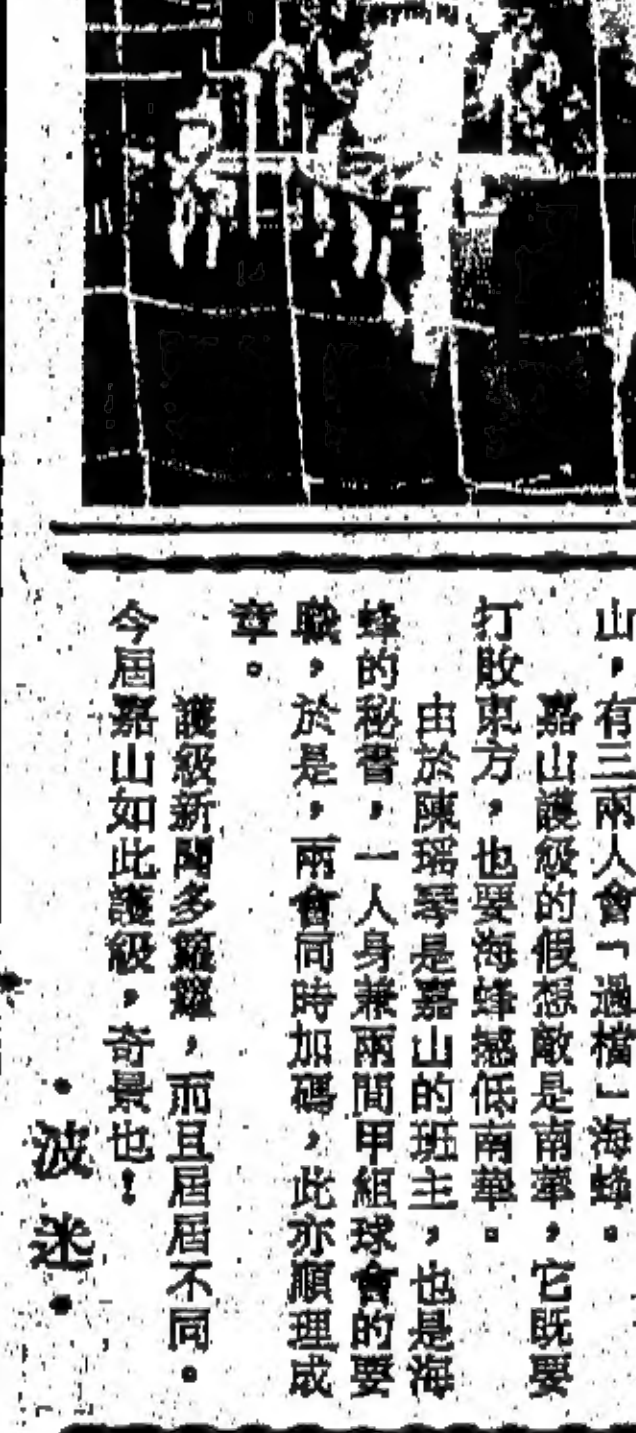 山，有三兩人會「過檔」海蜂。
嘉山護級的假想敵是南華，它既要
打敗東方，也要海蜂撼低南華。
由於陳瑤琴是嘉山的班主，也是海
蜂的秘書，一人身兼兩間甲組球會的要
職，於是，兩會同時加碼，此亦順理成
章。
護級新聞多籮籮，而且屆屆不同。
今屆嘉山如此護級，奇景也！
·波迷·